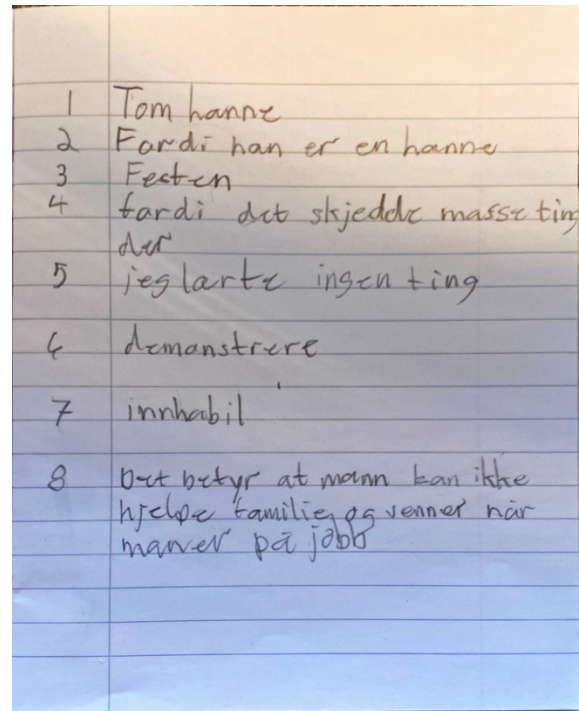 1 Tom hanne
2 Fordi han er en hanne
3 Festen
4 fardi det skjedde masse ting
der
5 jeg lærte ingen ting
6 demanstrere
7 innhabil
8 Det betyr at mann kan ikke
hjelpe familie og venner når
man er på jobb